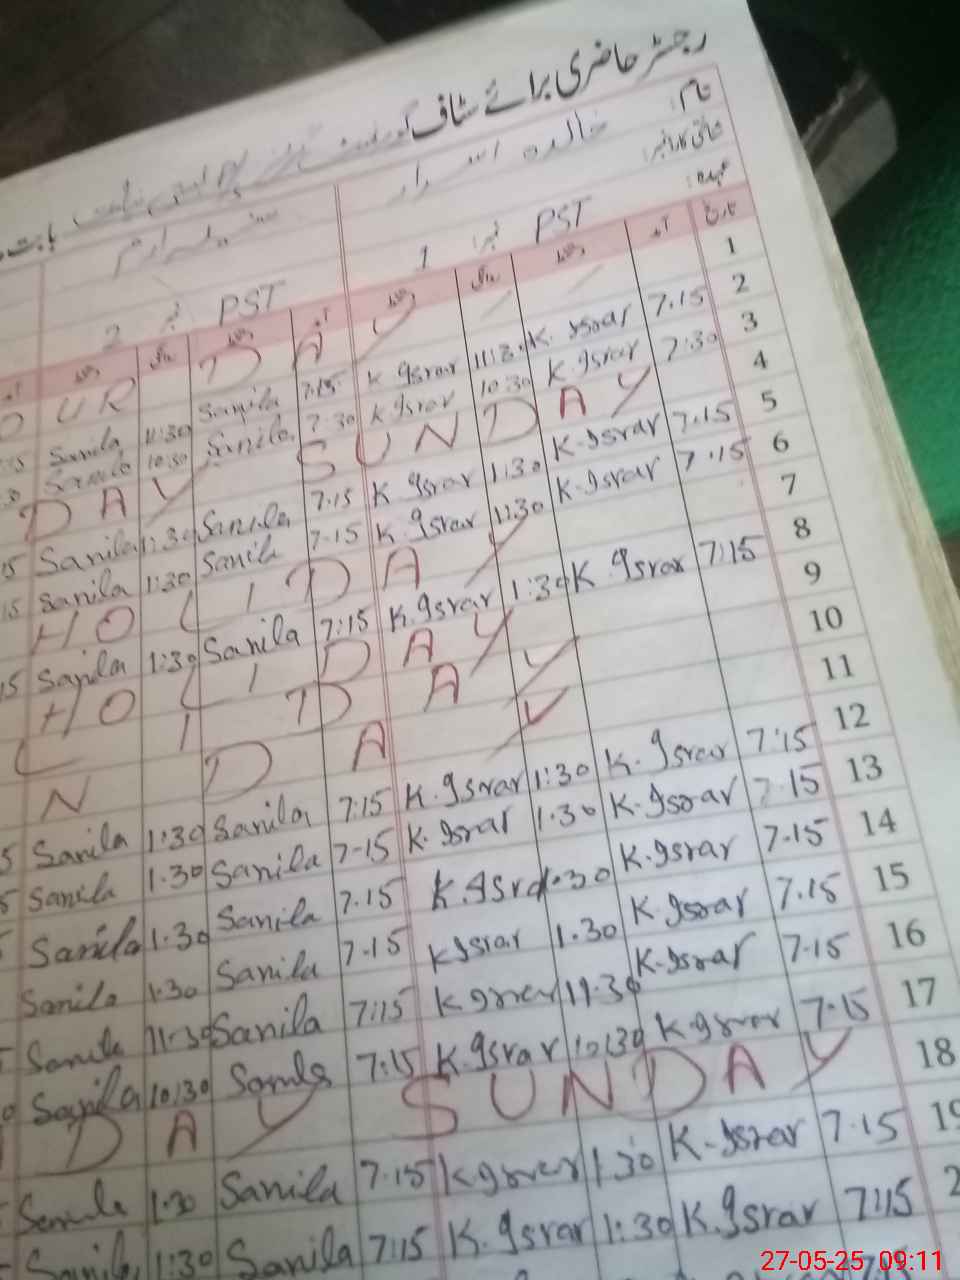 رجسٹر حاضری برائے سٹاف
نام:
خالدہ اسرار
شناختی کارڈ نمبر:
عہدہ:
PST نمبر 1
PST نمبر 2
تاریخ آمد دستخط روانگی دستخط آمد دستخط روانگی دستخط آمد
O U R D A Y 1
Sanila 11:30 Sanila 7:15 K. Israr 11:30 K. Israr 7.15 2
Sanila 10:30 Sanila 7:30 K. Israr 10:30 K. Israr 7:30 3
D A Y S U N D A Y 4
Sanila 1:30 Sanila 7:15 K. Israr 1:30 K. Israr 7.15 5
Sanila 1:30 Sanila 7.15 K. Israr 1:30 K. Israr 7.15 6
H O L I D A Y 7
Sanila 1:30 Sanila 7:15 K. Israr 1:30 K. Israr 7:15 8
H O L I D A Y 9
L I D A Y 10
N D A Y 11
Sanila 1:30 Sanila 7:15 K. Israr 1:30 K. Israr 7:15 12
Sanila 1.30 Sanila 7-15 K. Israr 1.30 K. Israr 7.15 13
Sanila 1.30 Sanila 7.15 K. Israr 1.30 K. Israr 7.15 14
Sanila 1.30 Sanila 7.15 K Israr 1.30 K. Israr 7.15 15
Sanila 11.30 Sanila 7:15 K Israr 11.30 K. Israr 7.15 16
Sanila 10:30 Sanila 7:15 K. Israr 10:30 K. Israr 7.15 17
D A Y S U N D A Y 18
Sanila 1.30 Sanila 7.15 K Israr 1.30 K. Israr 7.15 19
Sanila 1:30 Sanila 7:15 K. Israr 1:30 K. Israr 7:15 2
27-05-25 09:11